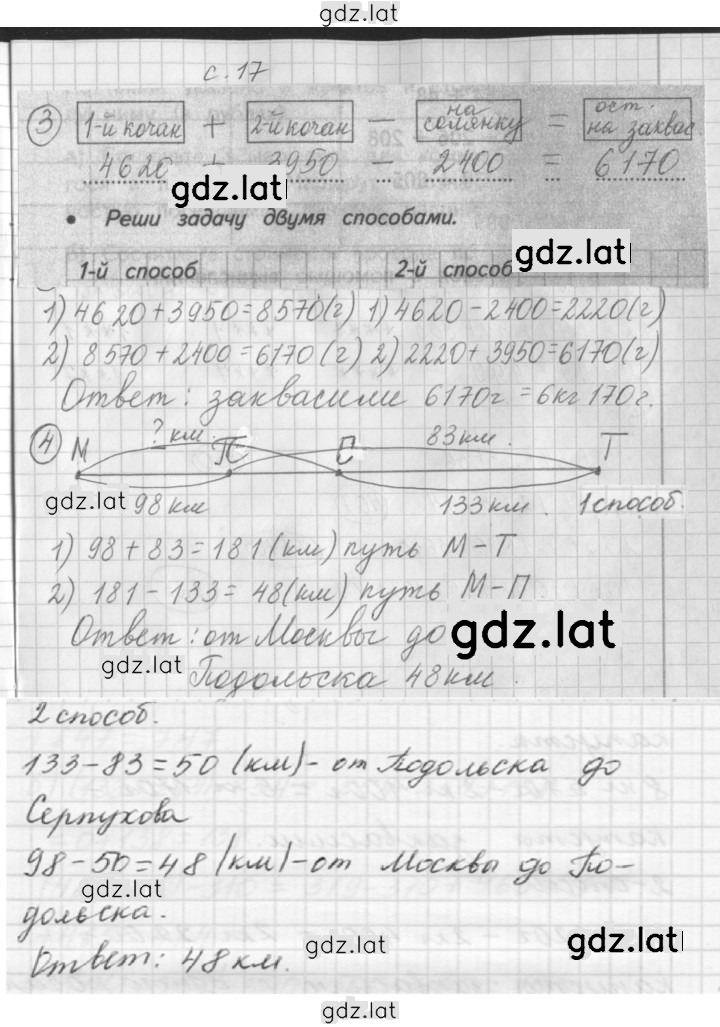 gdz.lat
с. 17
3 1-й кочан + 2-й кочан − на соломку = ост. на заквас.
4620 + 3950 − 2400 = 6170
gdz.lat
• Реши задачу двумя способами.
gdz.lat
1-й способ 2-й способ
1) 4620+3950=8570(г) 1) 4620-2400=2220(г)
2) 8570+2400=6170(г) 2) 2220+3950=6170(г)
Ответ: заквасили 6170г = 6кг 170г.
4 М ? км. П С 83км. Т
gdz.lat 98 км 133 км. 1 способ.
1) 98+83=181(км) путь М-Т
2) 181-133=48(км) путь М-П
Ответ: от Москвы до gdz.lat
gdz.lat Подольска 48 км.
2 способ.
133-83=50 (км)- от Подольска до
Серпухова
98-50=48 (км)-от Москвы до По-
gdz.lat
дольска.
Ответ: 48 км. gdz.lat gdz.lat
gdz.lat